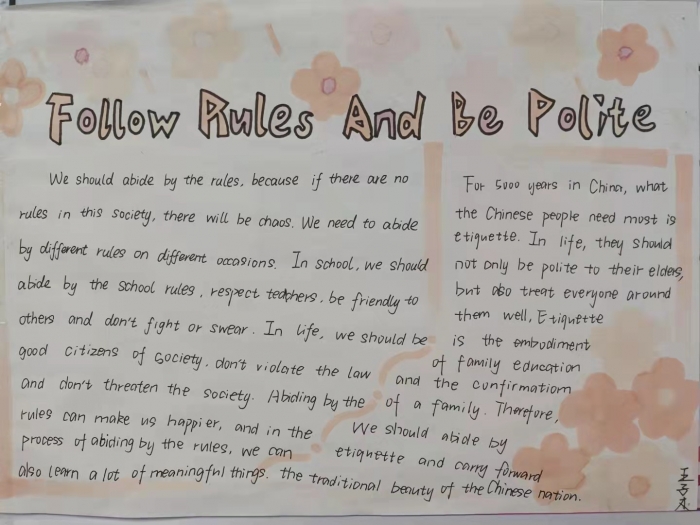 Follow Rules And Be Polite
We should abide by the rules, because if there are no
rules in this society, there will be chaos. We need to abide
by different rules on different occasions. In school, we should
abide by the school rules, respect teachers, be friendly to
others and don't fight or swear. In life, we should be
good citizens of society, don't violate the law
and don't threaten the society. Abiding by the
rules can make us happier, and in the
process of abiding by the rules, we can
also learn a lot of meaningful things.
For 5000 years in China, what
the Chinese people need most is
etiquette. In life, they should
not only be polite to their elders,
but also treat everyone around
them well, Etiquette
is the embodiment
of family education
and the confirmation
of a family. Therefore,
We should abide by
etiquette and carry forward
the traditional beauty of the Chinese nation.